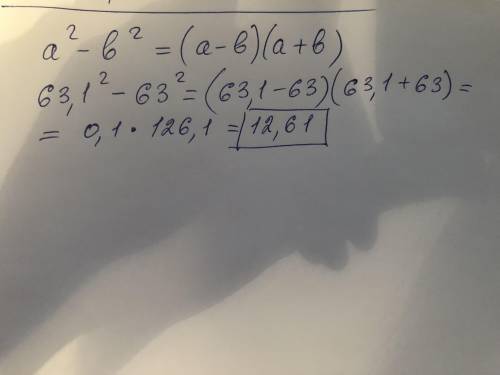 a² - b² = (a-b)(a+b)
63,1² - 63² = (63,1-63)(63,1+63) =
= 0,1 · 126,1 = 12,61